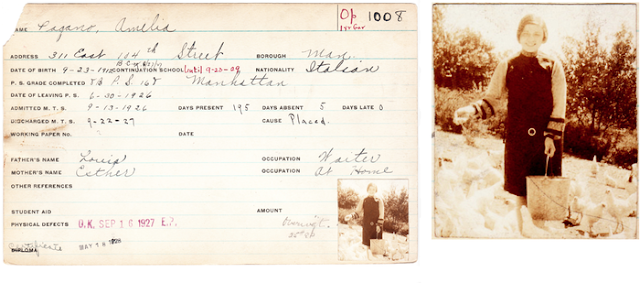 NAME Pagano, Amelia
Op 1008
1st Gar
ADDRESS 311 East 114th Street BOROUGH Man.
DATE OF BIRTH 9-23-1912 CONTINUATION SCHOOL (until) 9-23-29 NATIONALITY Italian
P. S. GRADE COMPLETED 8B P.S. 168 Manhattan
DATE OF LEAVING P. S. 6-30-1926
ADMITTED M. T. S. 9-13-1926 DAYS PRESENT 195 DAYS ABSENT 5 DAYS LATE 0
DISCHARGED M. T. S. 9-22-27 CAUSE Placed.
WORKING PAPER NO. DATE
FATHER'S NAME Louis OCCUPATION Waiter
MOTHER'S NAME Esther OCCUPATION At Home
OTHER REFERENCES
STUDENT AID AMOUNT
PHYSICAL DEFECTS O.K. SEP 16 1927 E.7.
Certificate
DIPLOMA MAY 18 1928